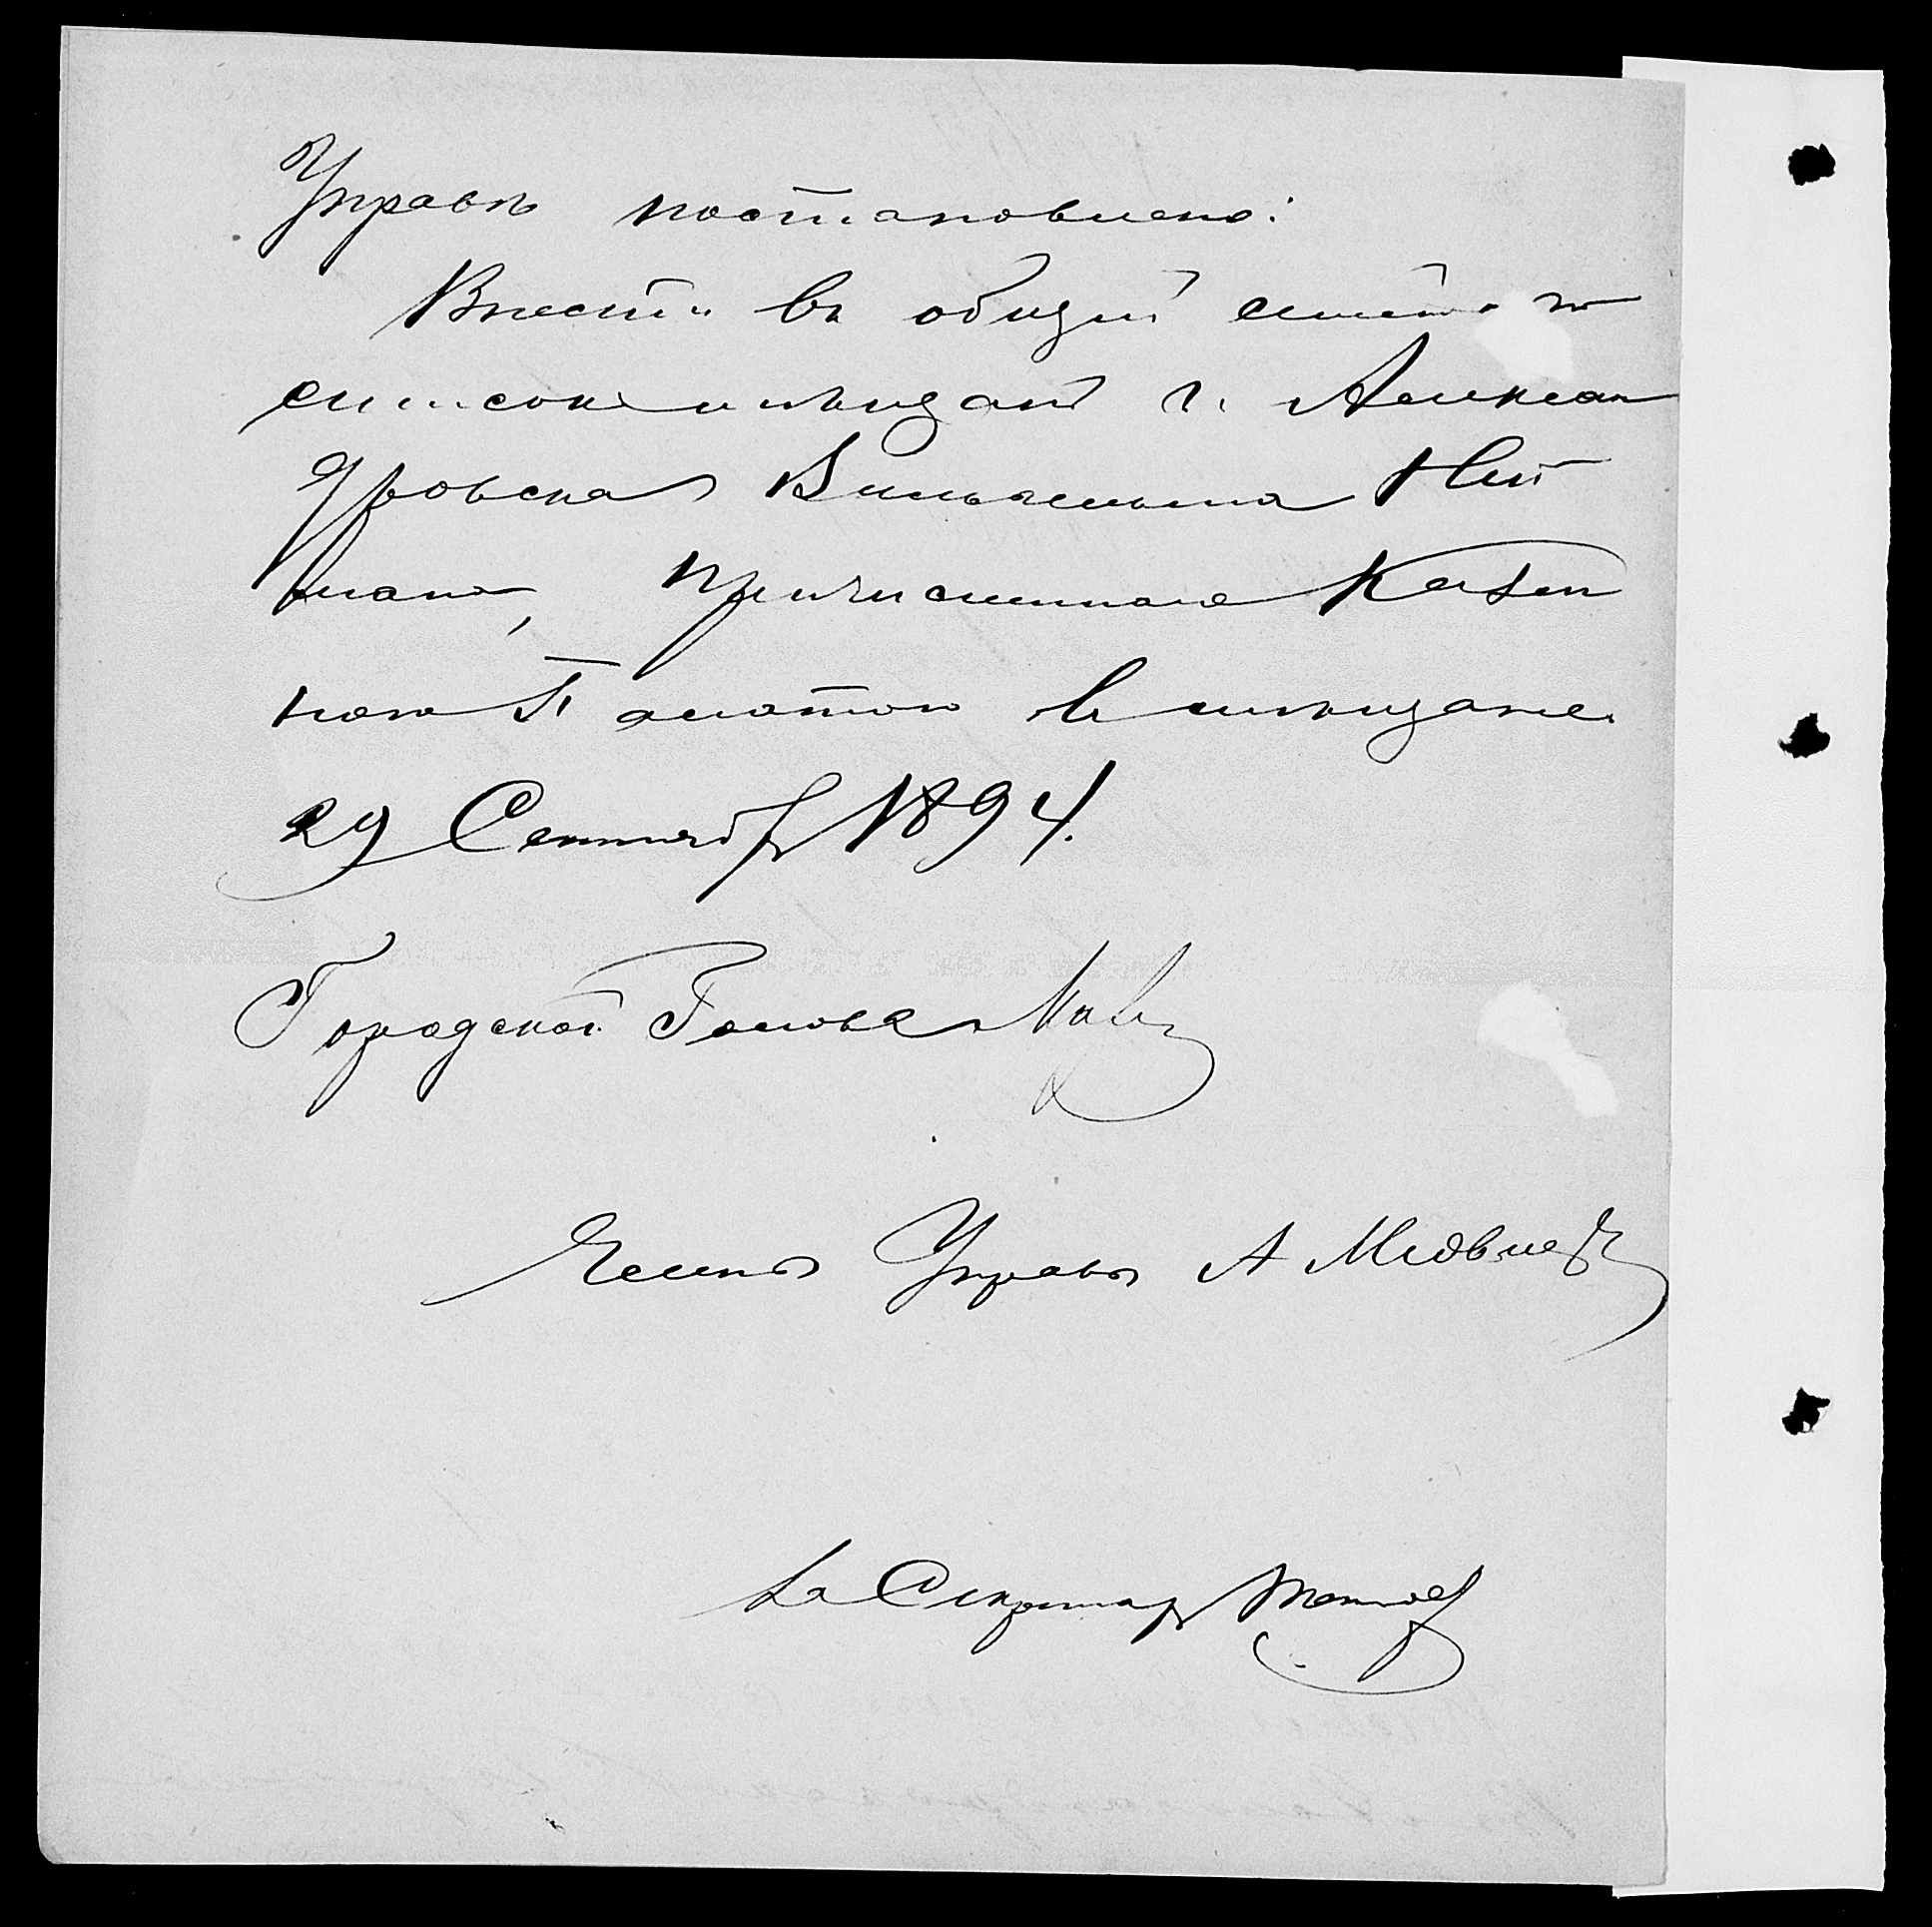 Управѣ постановлено:
Внести въ общій
списокъ мѣщанъ г. Алексан
дровска Вильгельма Ней
мана, причисленнаго Казен
ною Палатою въ мѣщане.
29 Сентября 1894.
Городской Голова
Члены Управы А Медвед
За Секретаря